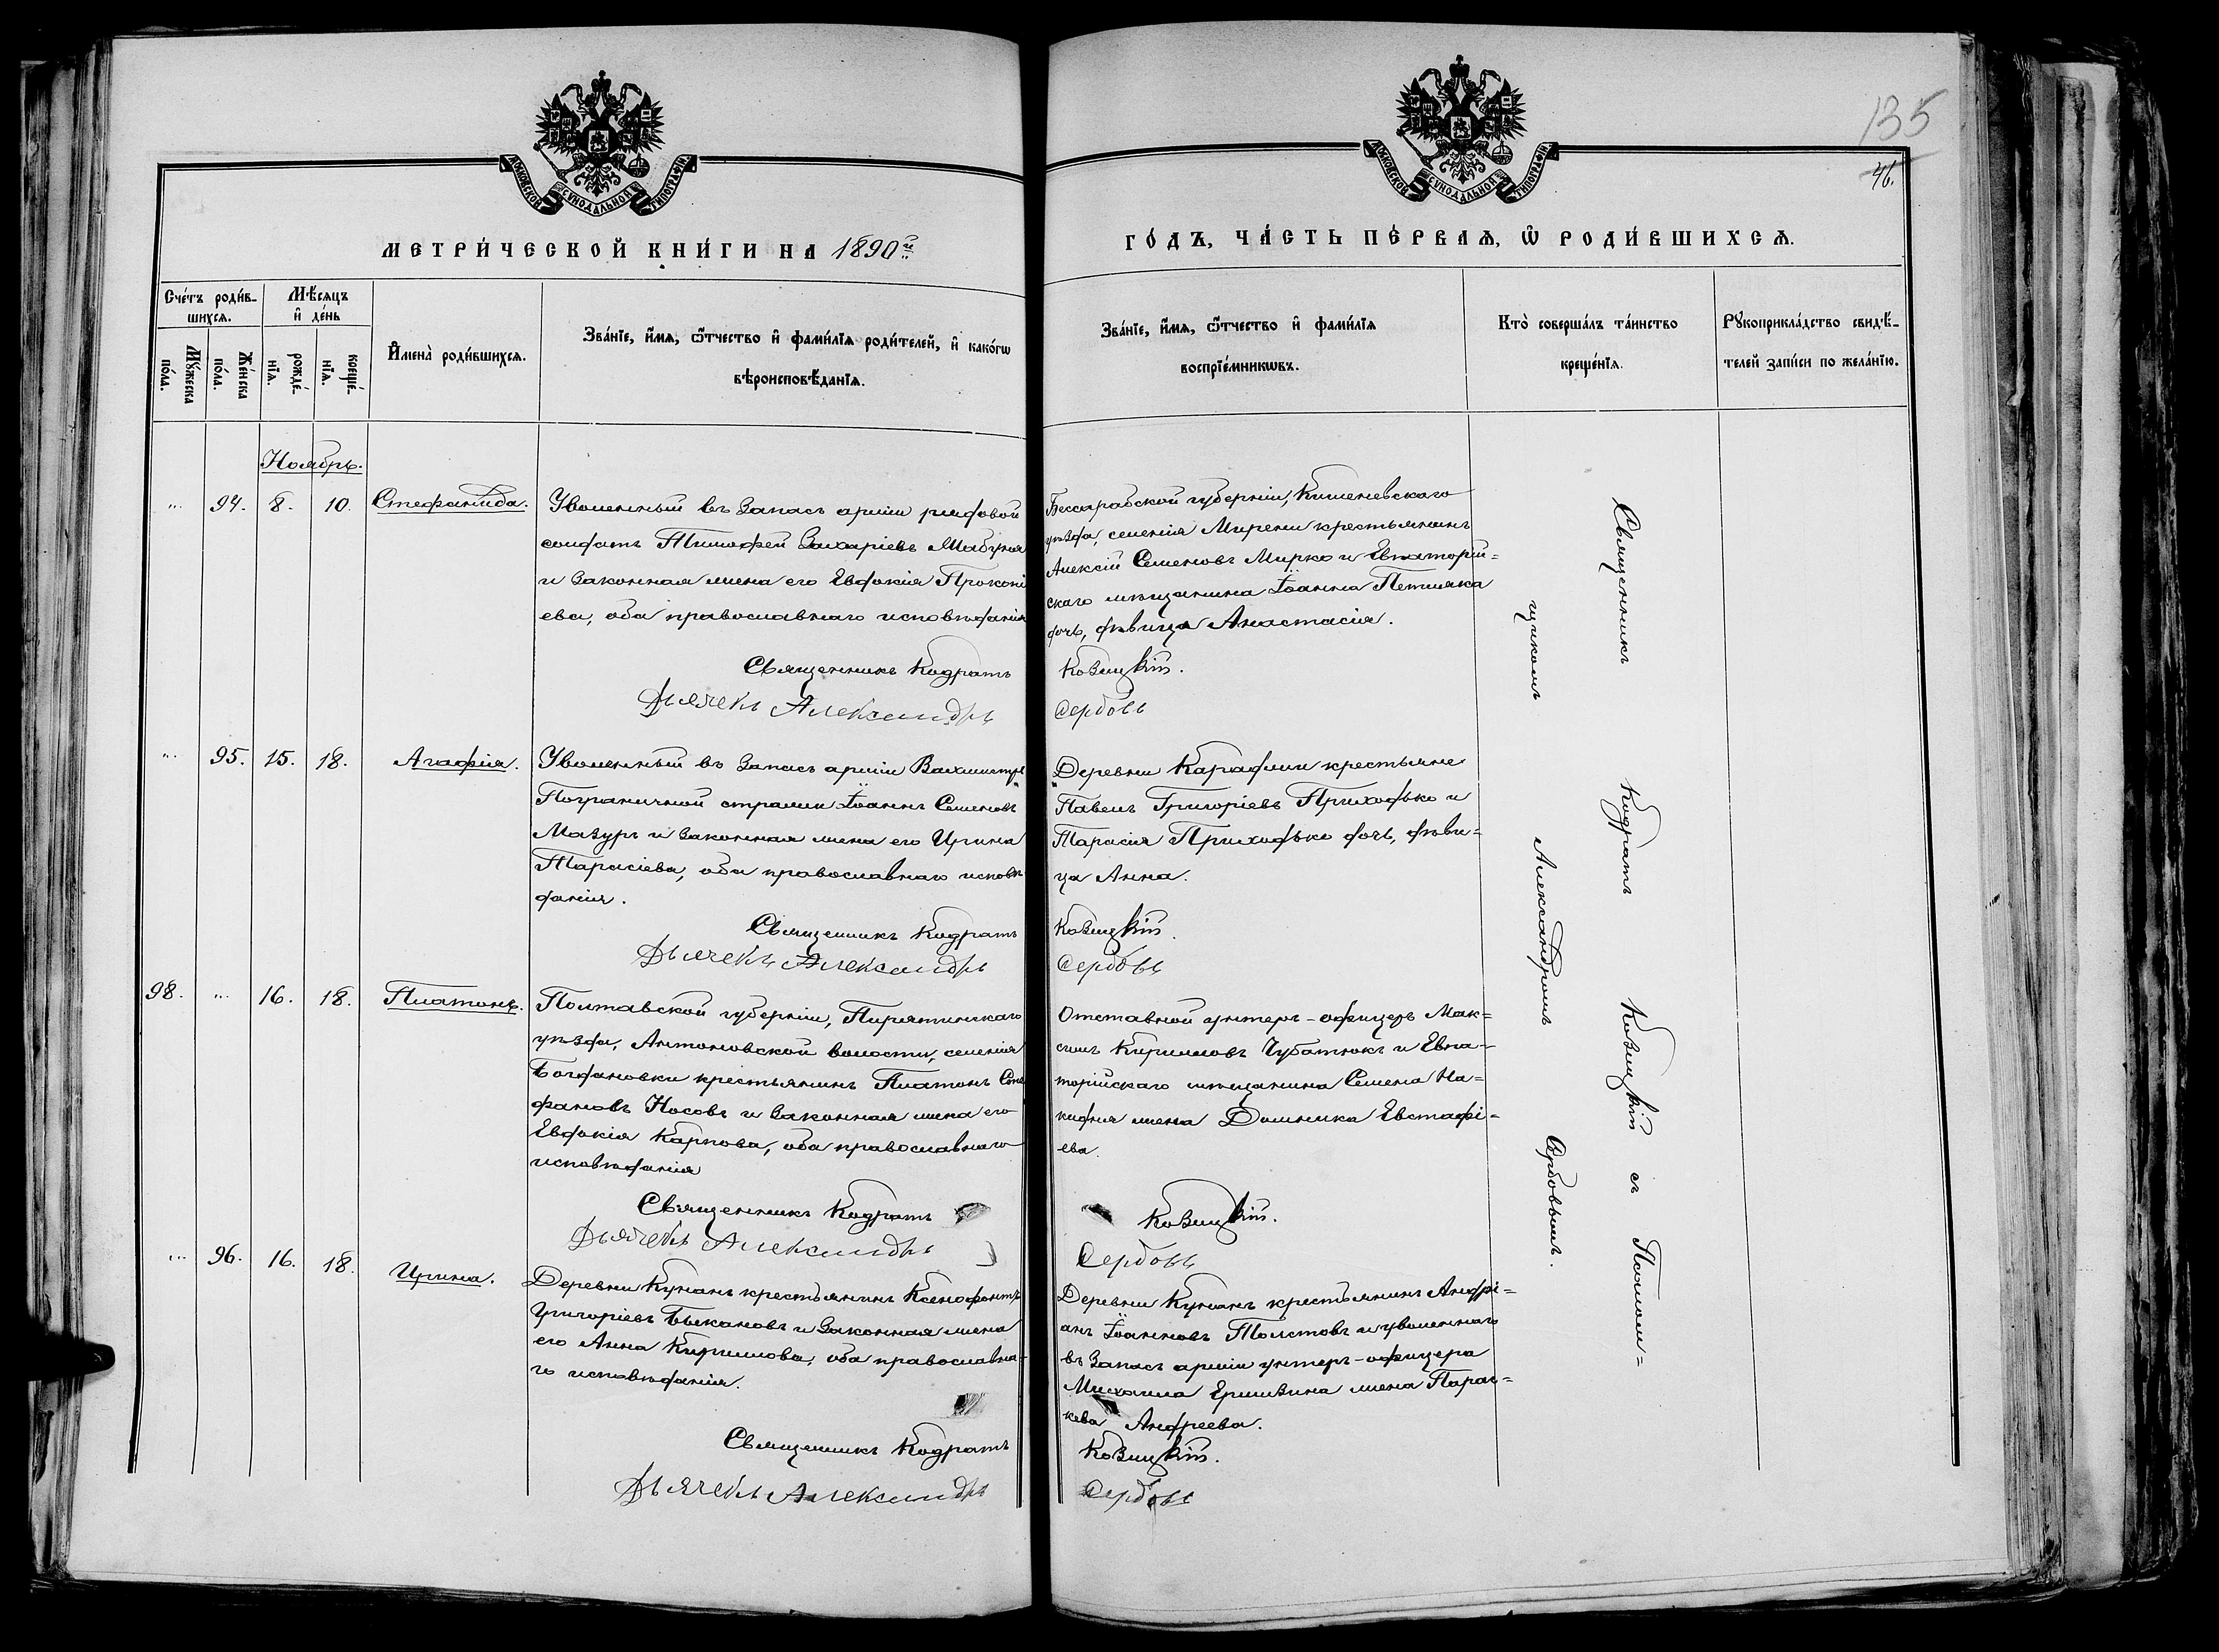 135
46.
МОСКОВСКОЙ СѴНОДАЛЬНОЙ ТИПОГРАФІИ
МОСКОВСКОЙ СѴНОДАЛЬНОЙ ТИПОГРАФІИ
МЕТРИ́ЧЕСКОЙ КНИ́ГИ НА 1890й
ГО́ДЪ, ЧА́СТЬ ПЕ́РВАѦ, Ѡ҆ РОДИ́ВШИХСѦ.
Сче́тъ роди́в-
шихсѧ.
Мꙋ́жеска по́ла.
Же́нска по́ла.
Мѣ́сѧцъ
и҆ де́нь
рожде́-нїѧ.
креще́-нїѧ.
И҆мена̀ роди́вшихсѧ.
Зва́нїе, и҆́мѧ, ѻ҆́тчество и҆ фами́лїѧ роди́телей, и҆ како́гѡ
вѣроисповѣ́данїѧ.
Зва́нїе, и҆́мѧ, ѻ҆́тчество и҆ фами́лїѧ
воспрїе́мникѡвъ.
Кто̀ соверша́лъ та́инство
креще́нїѧ.
Рꙋкоприкла́дство свидѣ́-
телей за́писи по жела́нїю.
Ноябрь.
" 94. 8. 10. Стефанида.
Уволенный въ запасъ арміи рядовой
солдатъ Тимофей Захаріевъ
и законная жена его Евдокія Прокопі
ева, оба православнаго исповѣданія
Священникъ Кодратъ
Дьячекъ Александръ
Бессарабской губерніи, Кишеневскаго
уѣзда, селенія Мирени крестьянинъ
Алексій Семеновъ Мирко и Евпаторій=
скаго мѣщанина Іоанна Петляка
дочь, дѣвица Анастасія.
Козицкій.
Сербовъ
" 95. 15. 18. Агафія.
Уволенный въ запасъ арміи Вахмистръ
Пограничной стражи Іоаннъ Семеновъ
Мазуръ и законная жена его Ирина
Тарасіева, оба православнаго исповѣ
данія.
Священникъ Кодратъ
Дьячекъ Александръ
Деревни Караджи крестьяне
Павелъ Григоріевъ Приходько и
Тарасія Приходько дочь, дѣви=
ца Анна.
Козицкій.
Сербовъ
98. " 16. 18. Платонъ.
Полтавской губерніи, Пирятинскаго
уѣзда, Антоновской волости, селенія
Богдановки крестьянинъ Платонъ Сте
фановъ Носовъ и законная жена его
Евдокія Карпова, оба православнаго
исповѣданія
Священникъ Кодратъ
Дьячекъ Александръ
Отставной унтеръ-офицеръ Мак=
симъ Кирилловъ Чубатюкъ и Евпа-
торійскаго мѣщанина Семена На=
жена Домника Евстафі=
ева.
Козицкій.
Сербовъ
" 96. 16. 18. Ирина.
Деревни Кунанъ крестьянинъ Ксенофонтъ
Григоріевъ Быкановъ и законная жена
его Анна Кириллова, оба православна-
го исповѣданія.
Священникъ Кодратъ
Дьячекъ Александръ
Деревни Кунанъ крестьянинъ Андрі=
анъ Іоанновъ Толстовъ и уволеннаго
въ запасъ арміи унтеръ-офицера
Михаила Ермизина жена Парас=
кева Андреева.
Козицкій.
Сербовъ
Священникъ Кодратъ Козицкій съ Псалом=
щикомъ Александромъ Сербовымъ.